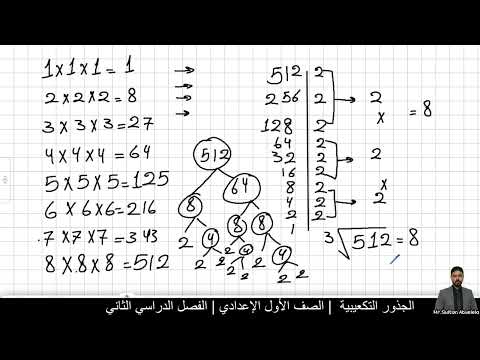 1 × 1 × 1 = 1
2 × 2 × 2 = 8
3 × 3 × 3 = 27
4 × 4 × 4 = 64
5 × 5 × 5 = 125
6 × 6 × 6 = 216
7 × 7 × 7 = 343
8 × 8 × 8 = 512
512
8 64
2 4 8 8
2 2 2 4 2 4
2 2 2 2
512 | 2
256 | 2
128 | 2
64 | 2
32 | 2
16 | 2
8 | 2
4 | 2
2 | 2
1
→ 2
×
→ 2
×
→ 2
= 8
∛512 = 8
الجذور التكعيبية | الصف الأول الإعدادي | الفصل الدراسي الثاني
Mr.Sultan Abualela